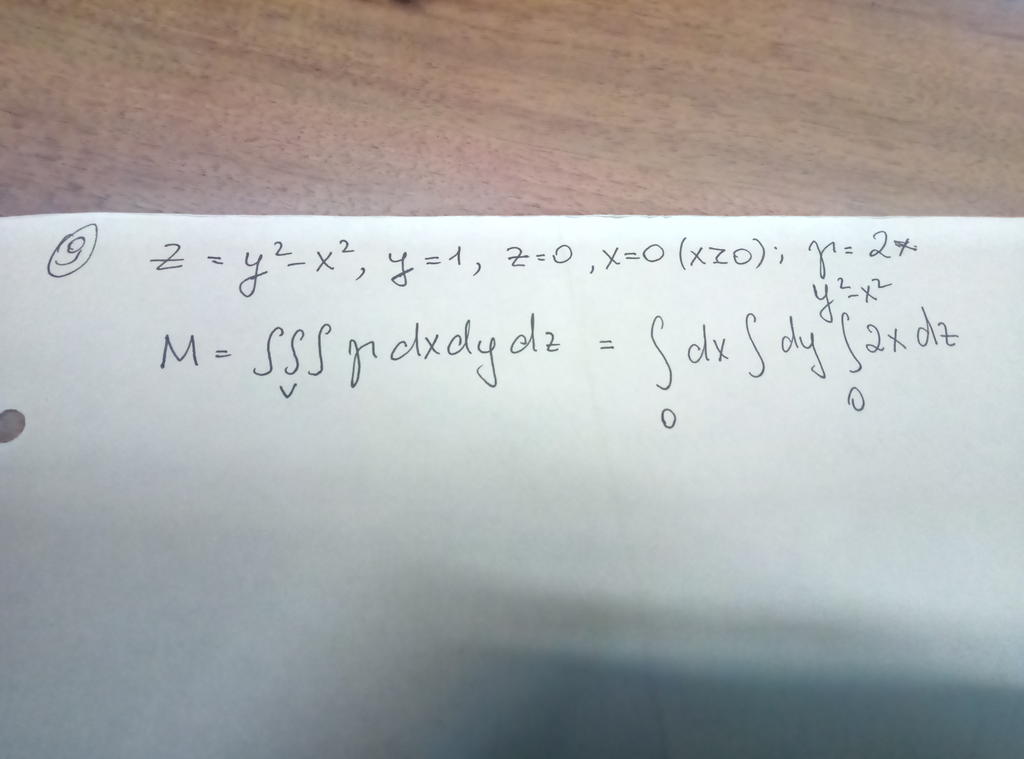 ⑨ z = y²-x², y=1, z=0, x=0 (x≥0); μ = 2x
M = ∫∫∫_V μ dx dy dz = ∫_0 dx ∫ dy ∫_0^{y²-x²} 2x dz